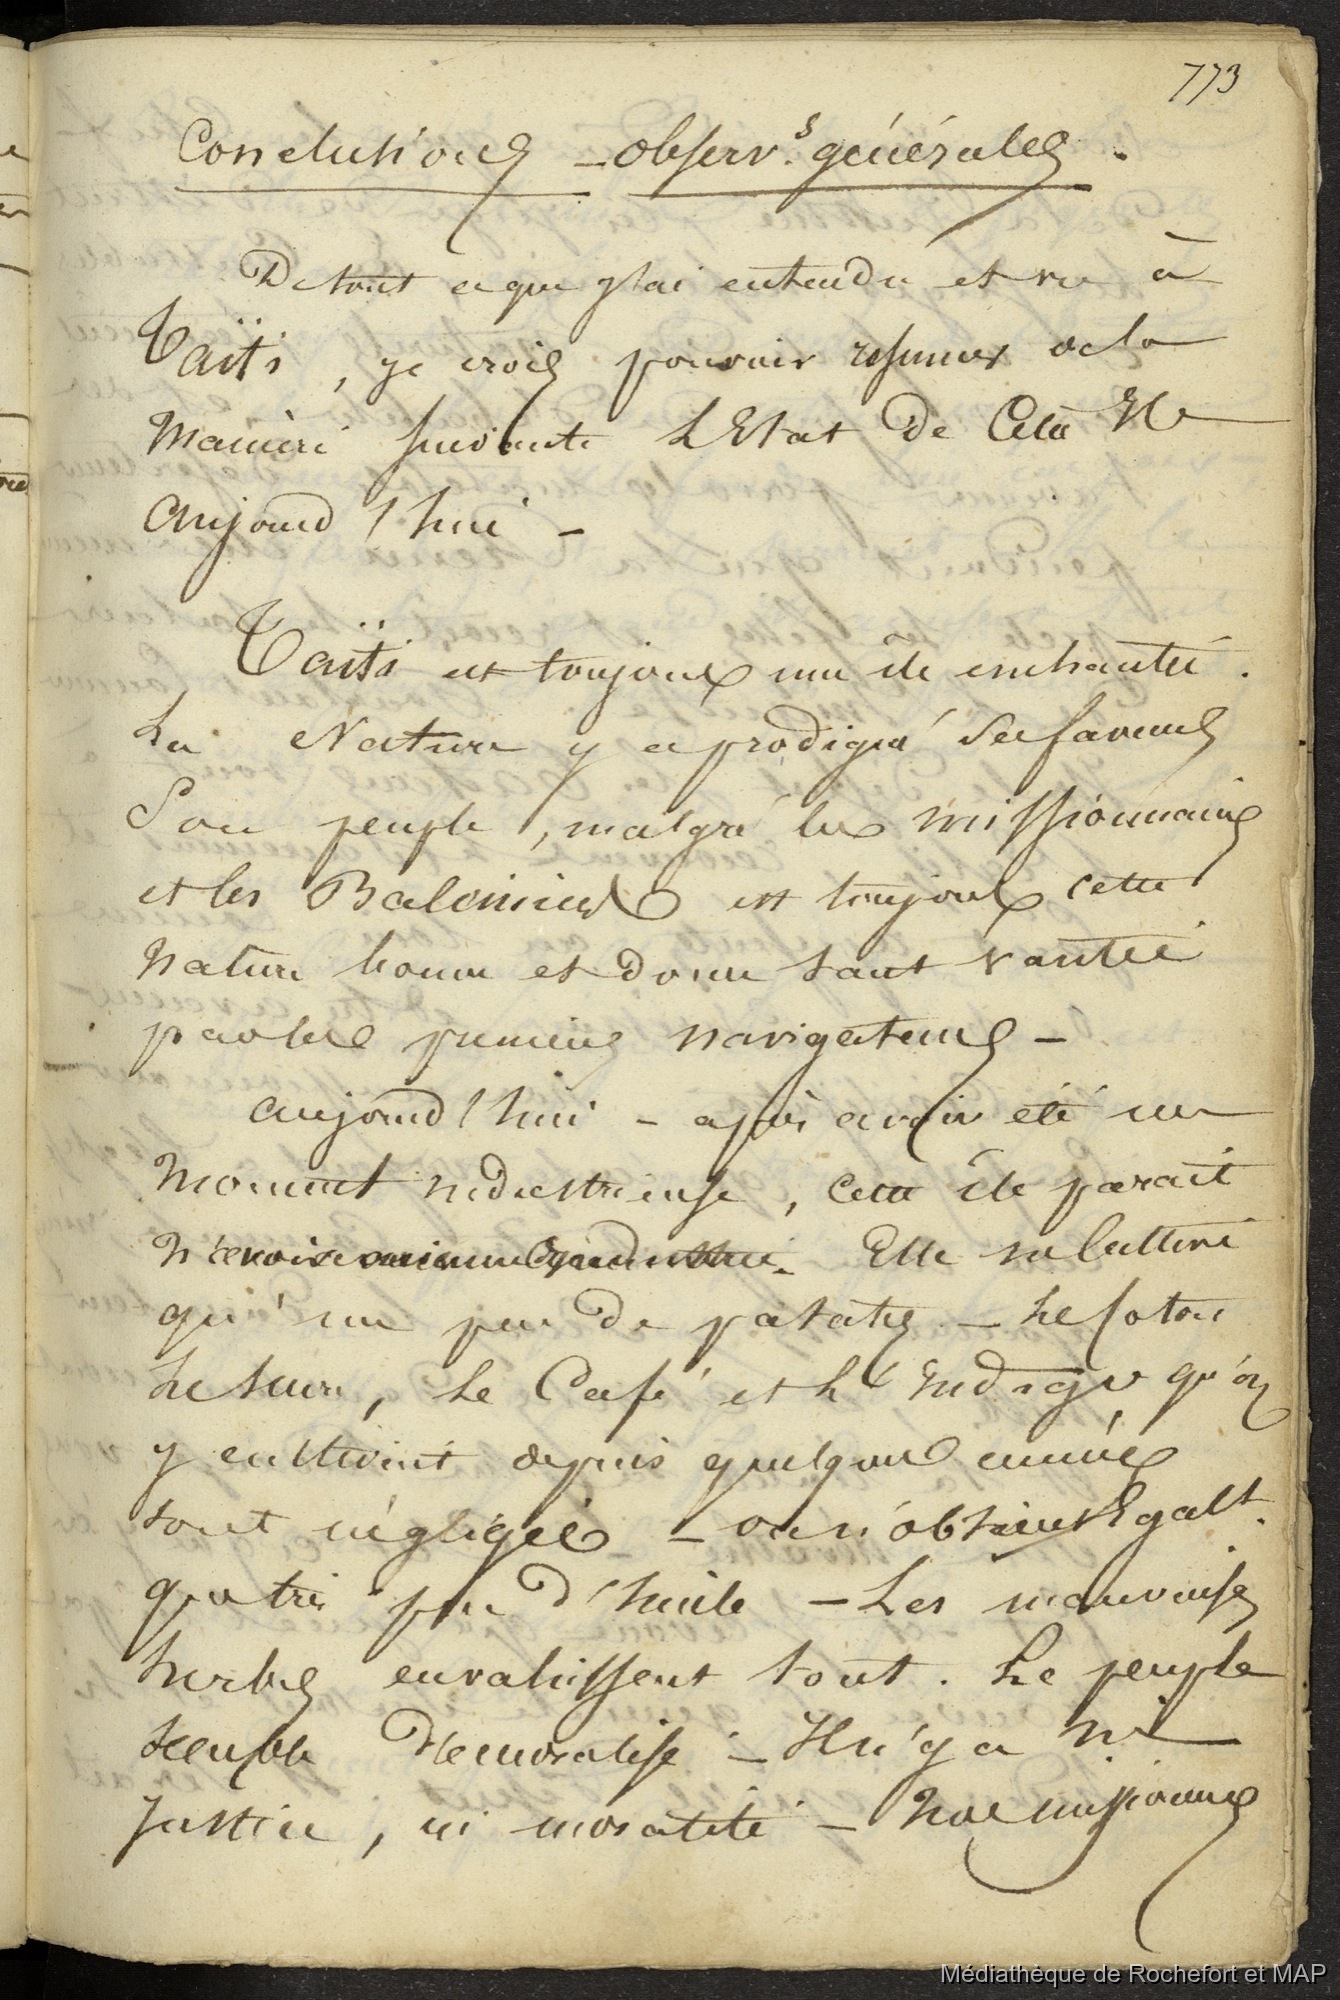 773
Conclusions - observ.s générales.
De tout ce que j'ai entendu et vu à
Taïti, je crois pouvoir resumer de la
maniere suivante l'Etat de cette Ile
aujourd'hui -
Taïti est toujours une île enchantée.
La Nature y a prodigué ses faveurs
Son peuple, malgré les missionnaires
et les Baleiniers est toujours cette
nature bonne et douce tant vantée
par les premiers navigateurs -
aujourd'hui - après avoir été un
moment industrieuse, cette île parait
n'avoir aucune industrie. Elle ne cultive
qu'un peu de patates - Le coton
le sucre, le Café et l'Indigo qu'on
y cultivait depuis quelques années
sont négligés - on n'obtient Egalt.
que très peu d'huile - Les mauvaises
herbes envahissent tout. Le peuple
semble démoralisé - Il n'y a ni
Justice, ni moralité - nos missionnaires
Médiathèque de Rochefort et MAP